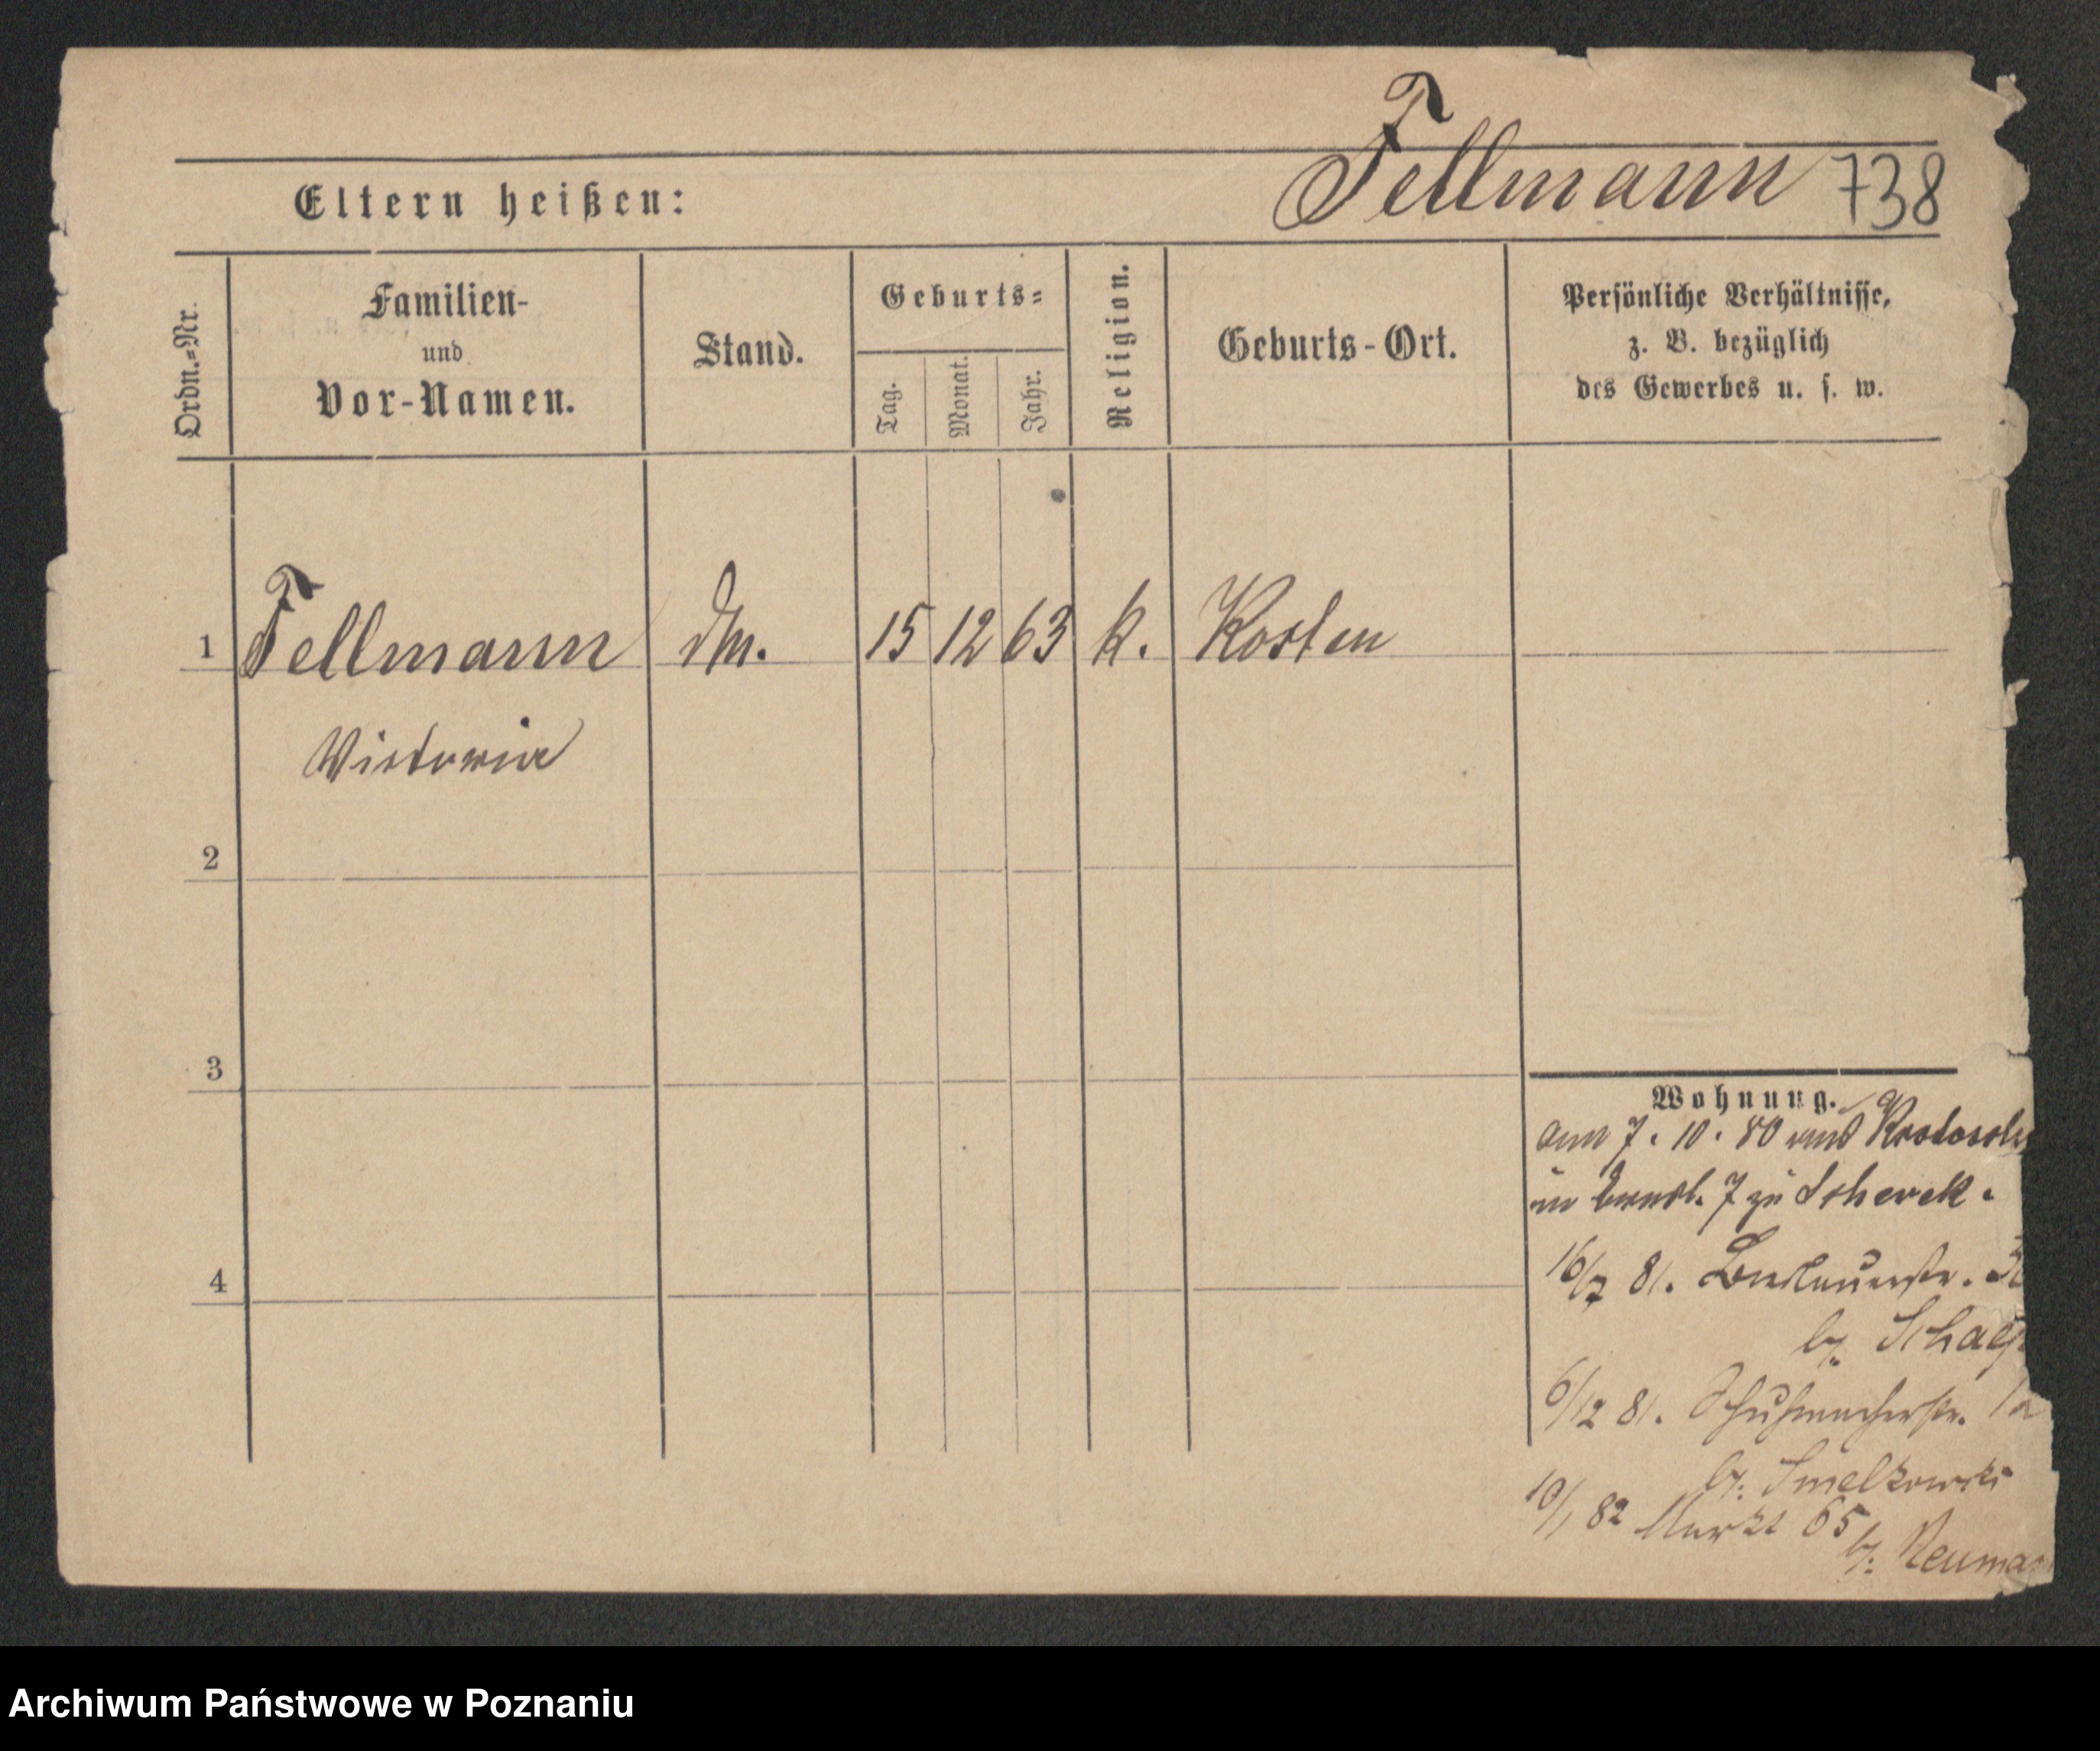 Eltern heißen:
Fellmann 738
Ordn.=Nr.
Familien-
und
Vor-Namen.
Stand.
Geburts=
Tag.
Monat.
Jahr.
Religion.
Geburts-Ort.
Persönliche Verhältnisse,
z. B. bezüglich
des Gewerbes u. s. w.
1 Fellmann 15 12 63 k. Kosten
Victoria
2
3
4
Wohnung.
am 7. 10. 80 aus
7 zu
16/7 81. Breslauerstr. 3
b.
6/12 81. Schuhmacherstr.
b. Smelkowski
10/1 82 Markt 65
b. Neuman
Archiwum Państwowe w Poznaniu